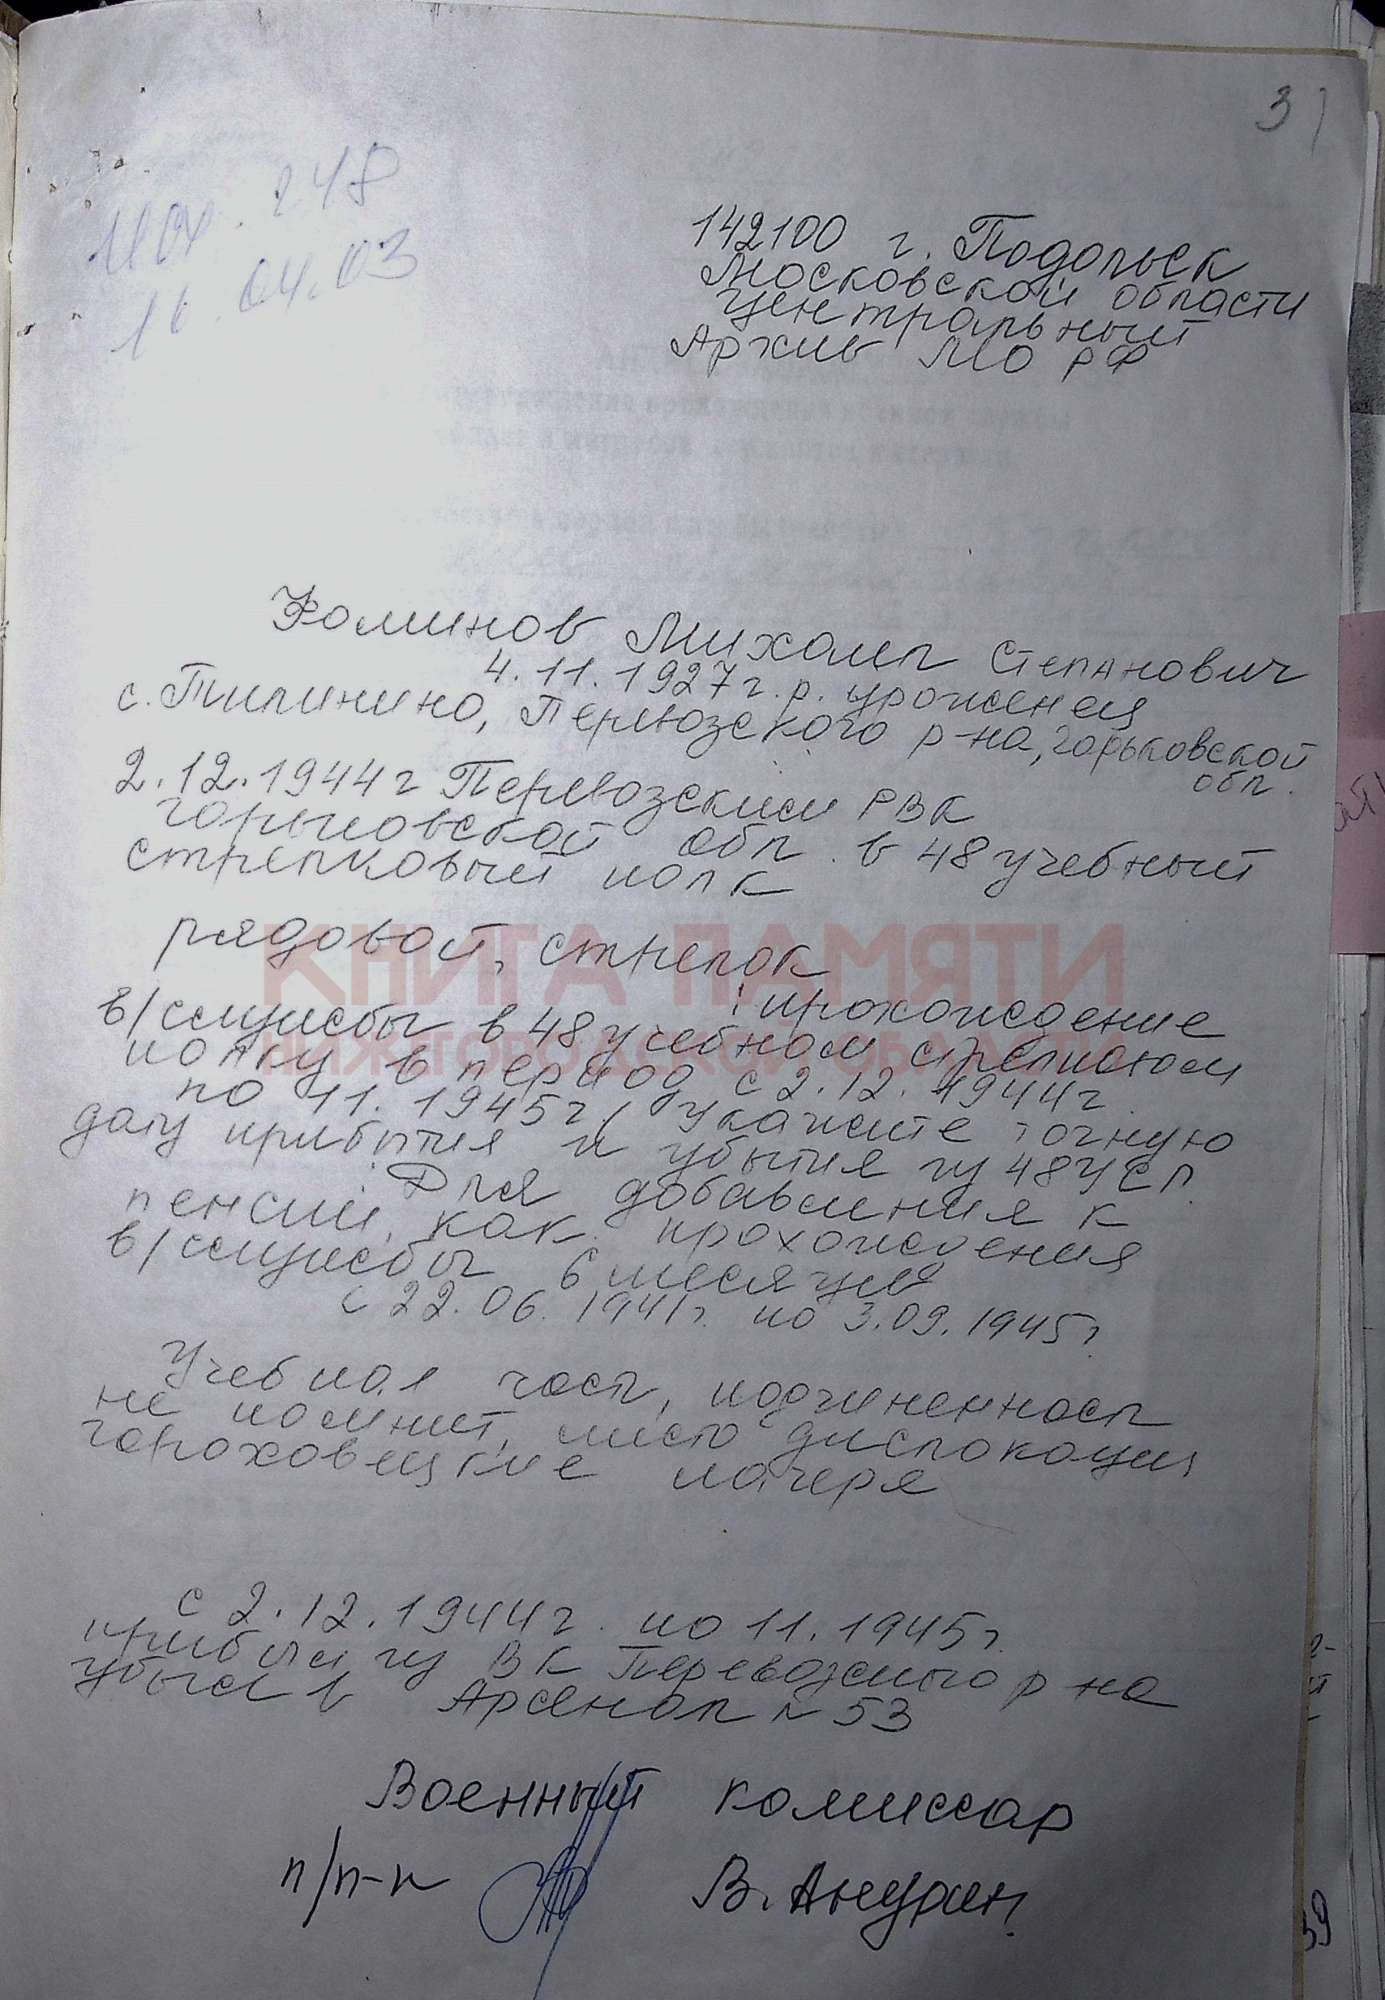 31
Исх. 248
16.04.03
142100 г. Подольск
Московской области
Центральный
Архив МО РФ
Фоминов Михаил Степанович
4.11.1927г.р. уроженец
с. Пилинино, Первозского р-на, Горьковской
обл.
2.12.1944г Перевозским РВК
Горьковской обл. в 48 учебный
стрелковый полк
рядовой, стрелок
КНИГА ПАМЯТИ
НИЖЕГОРОДСКОЙ ОБЛАСТИ
прохождение
в/службы в 48 учебном стрелковом
полку в период с 2.12.1944г.
по 11.1945г, укажите точную
дату прибытия и убытия из 48 УСП.
Для добавления к
пенсии, как прохождения
в/службы 6 месяцев
с 22.06.1941г. по 3.09.1945г.
Учебная часть, подчиненность
не помнит, место дислокации
Гороховецкие лагеря
с 2.12.1944г. по 11.1945г.
прибыл из ВК Перевозского р-на
убыл в Арсенал № 53
Военный комиссар
п/п-к В. Анурин